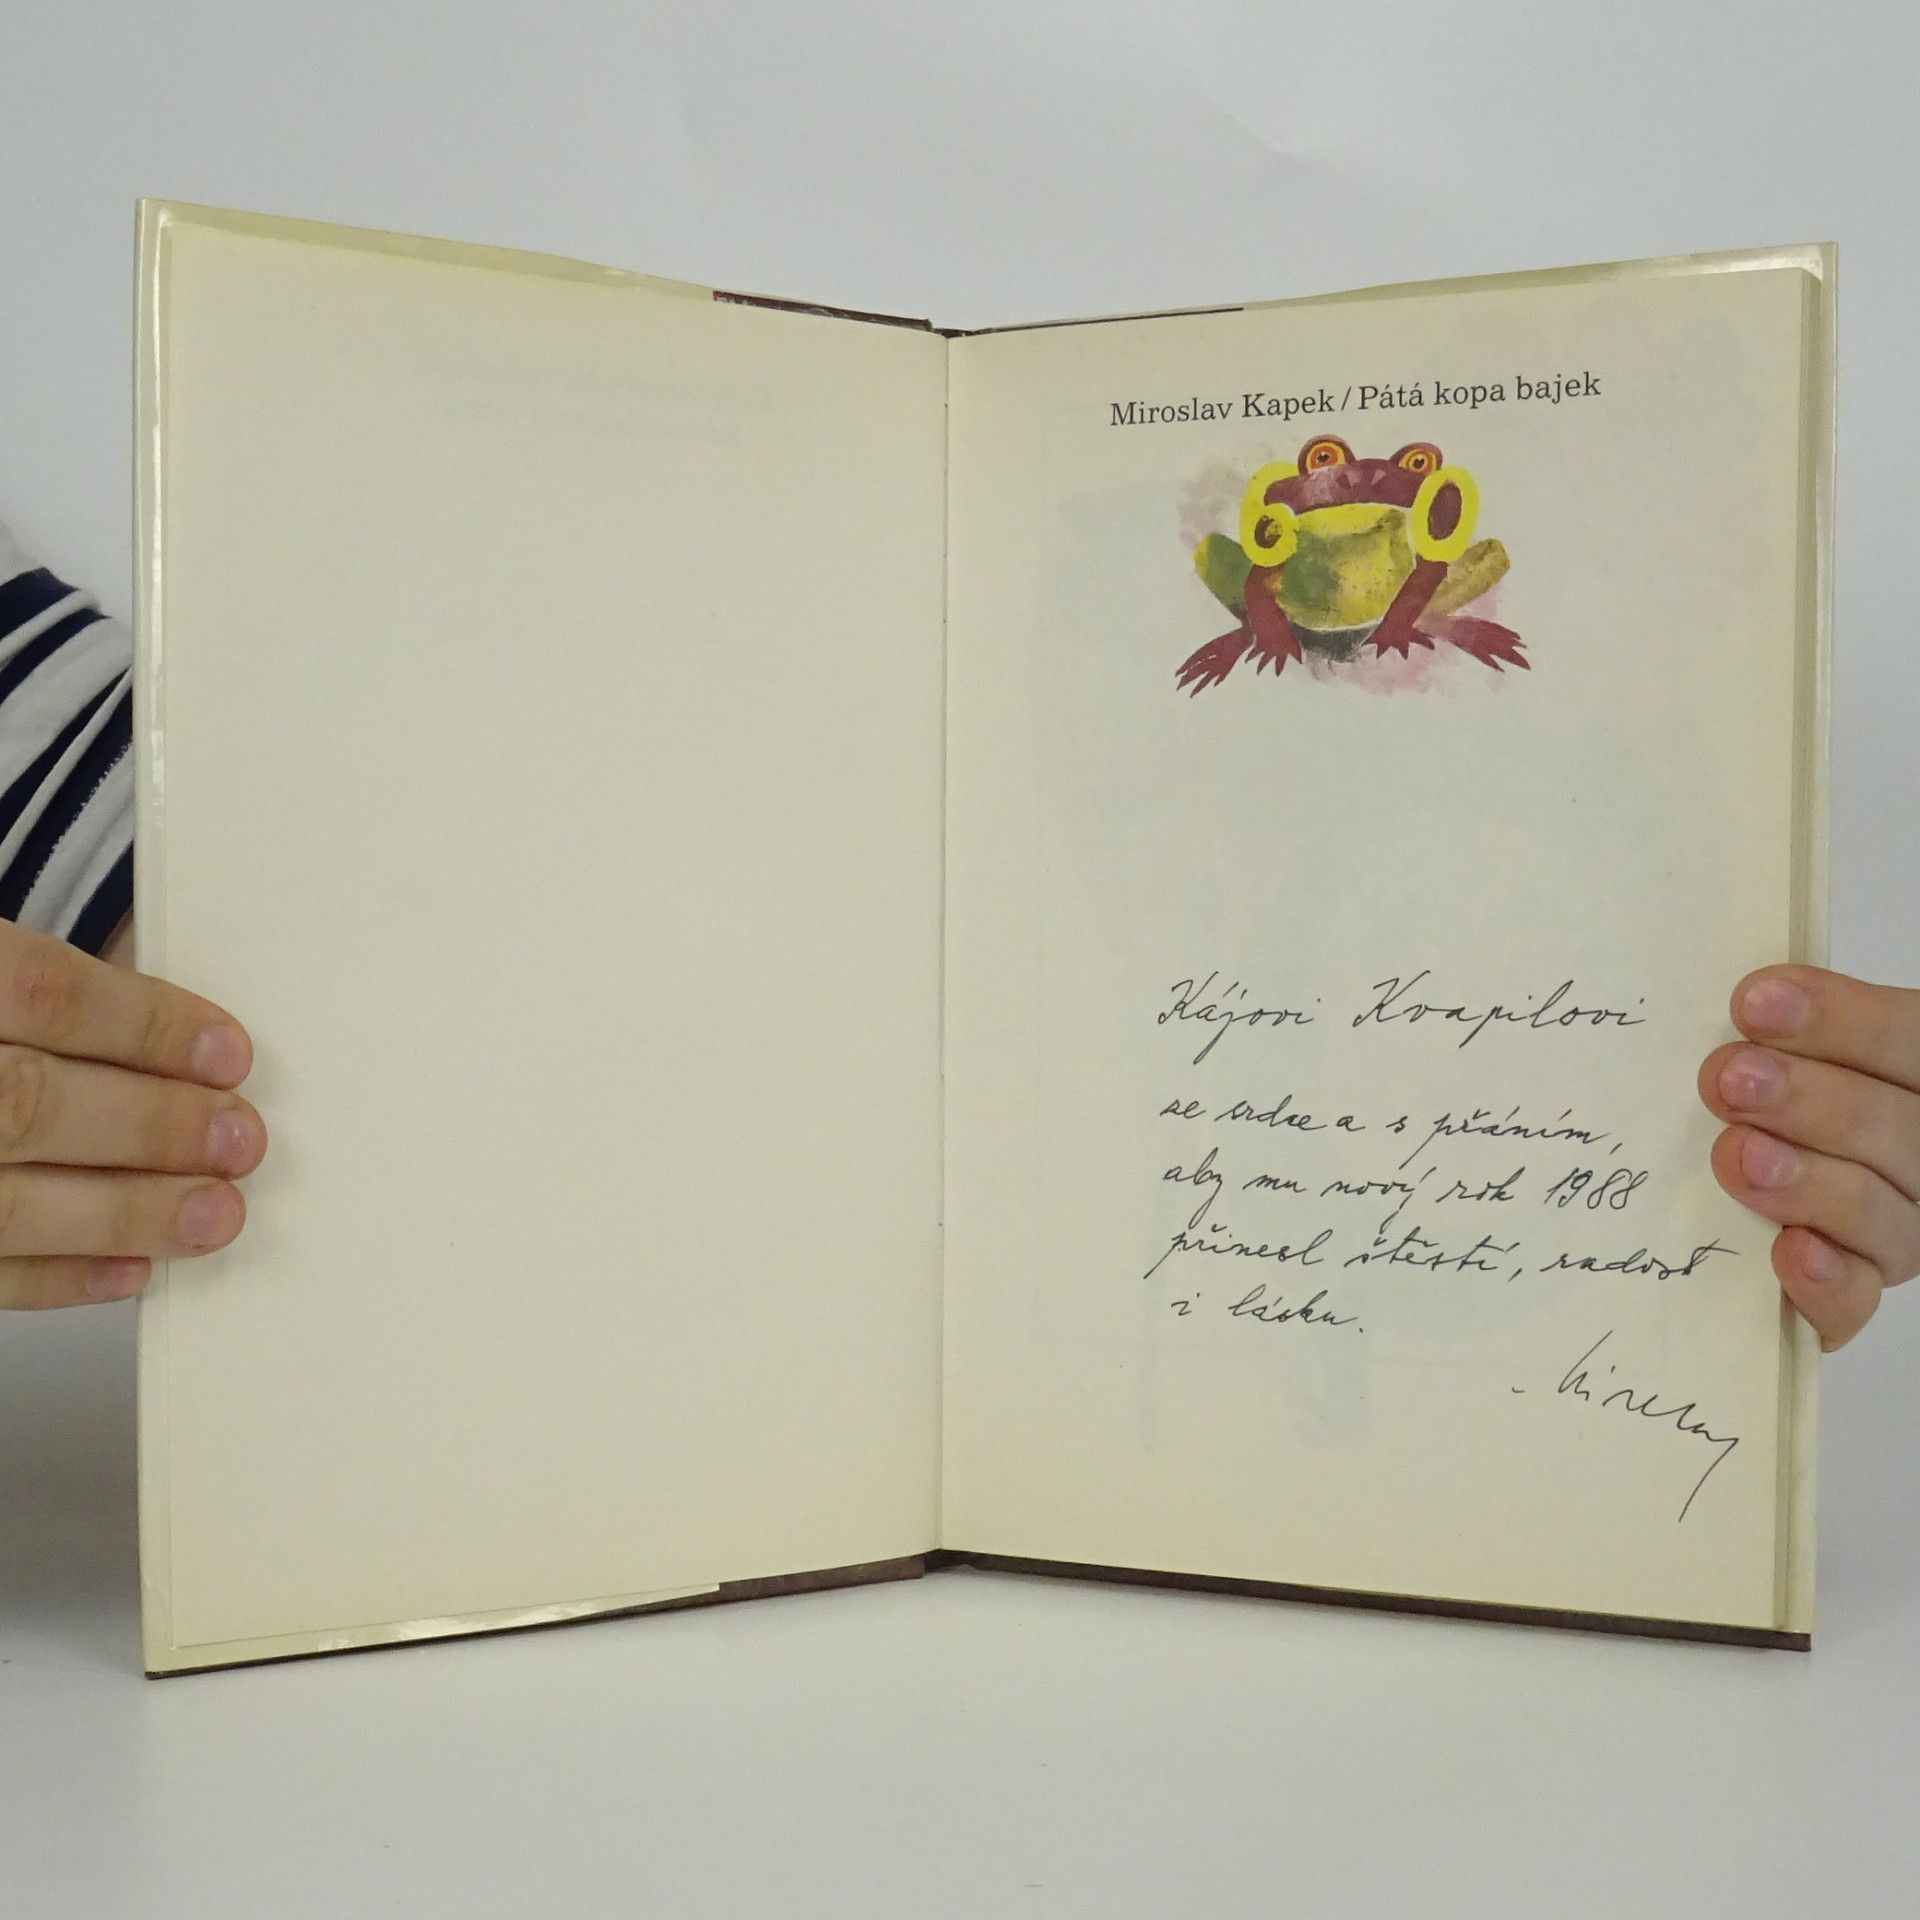 Miroslav Kapek / Pátá kopa bajek
60
Kájovi Kvapilovi
ze srdce a s přáním,
aby mu nový rok 1988
přinesl štěstí, radost
i lásku.